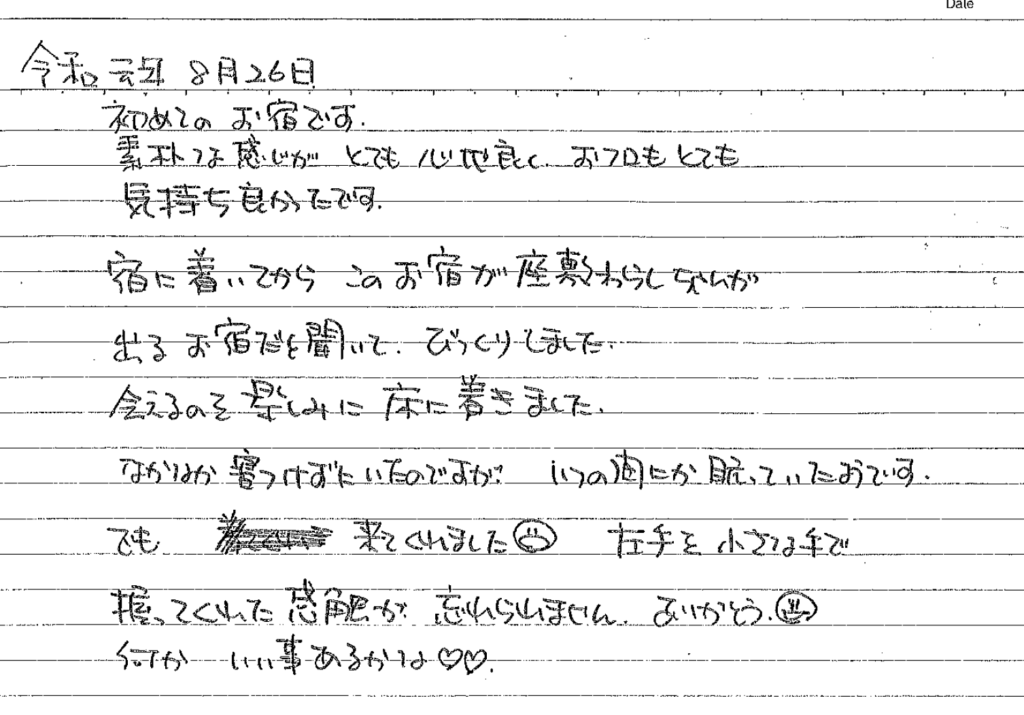 Date
令和元年 8月26日
初めてのお宿です.
素朴な感じが とても 心地良く おフロもとても
気持ち良かったです.
宿に着いてから このお宿が座敷わらしちゃんが
出るお宿だと聞いて、びっくりしました.
会えるのを楽しみに 床に着きました.
なかなか寝つけずにいたのですが、 いつの間にか眠っていたようです.
でも 来てくれました 左手を小さな手で
握ってくれた感触が 忘れられません. ありがとう.
何か いい事あるかな♡♡.